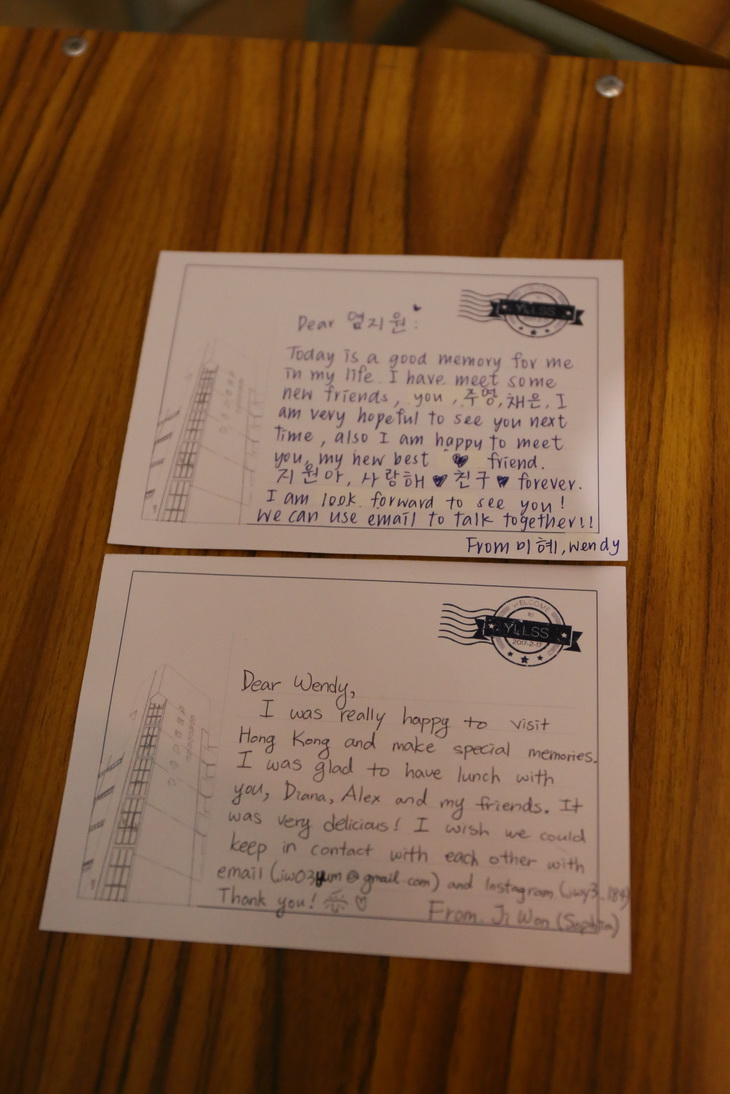 YLLSS
Dear 염지원 :
Today is a good memory for me
in my life. I have meet some
new friends, you, 주영, 채은, I
am very hopeful to see you next
time, also I am happy to meet
you, my new best ♥ friend.
지원아, 사랑해 ♥ 친구 ♥ forever.
I am look forward to see you!
We can use email to talk together!!
From 미혜, Wendy
WELCOME
YLLSS
2017-2-17
Dear Wendy,
I was really happy to visit
Hong Kong and make special memories.
I was glad to have lunch with
you, Diana, Alex and my friends. It
was very delicious! I wish we could
keep in contact with each other with
email (jw03yum@gmail.com) and Instagram
Thank you! ♡
From. Ji Won (Sophia)